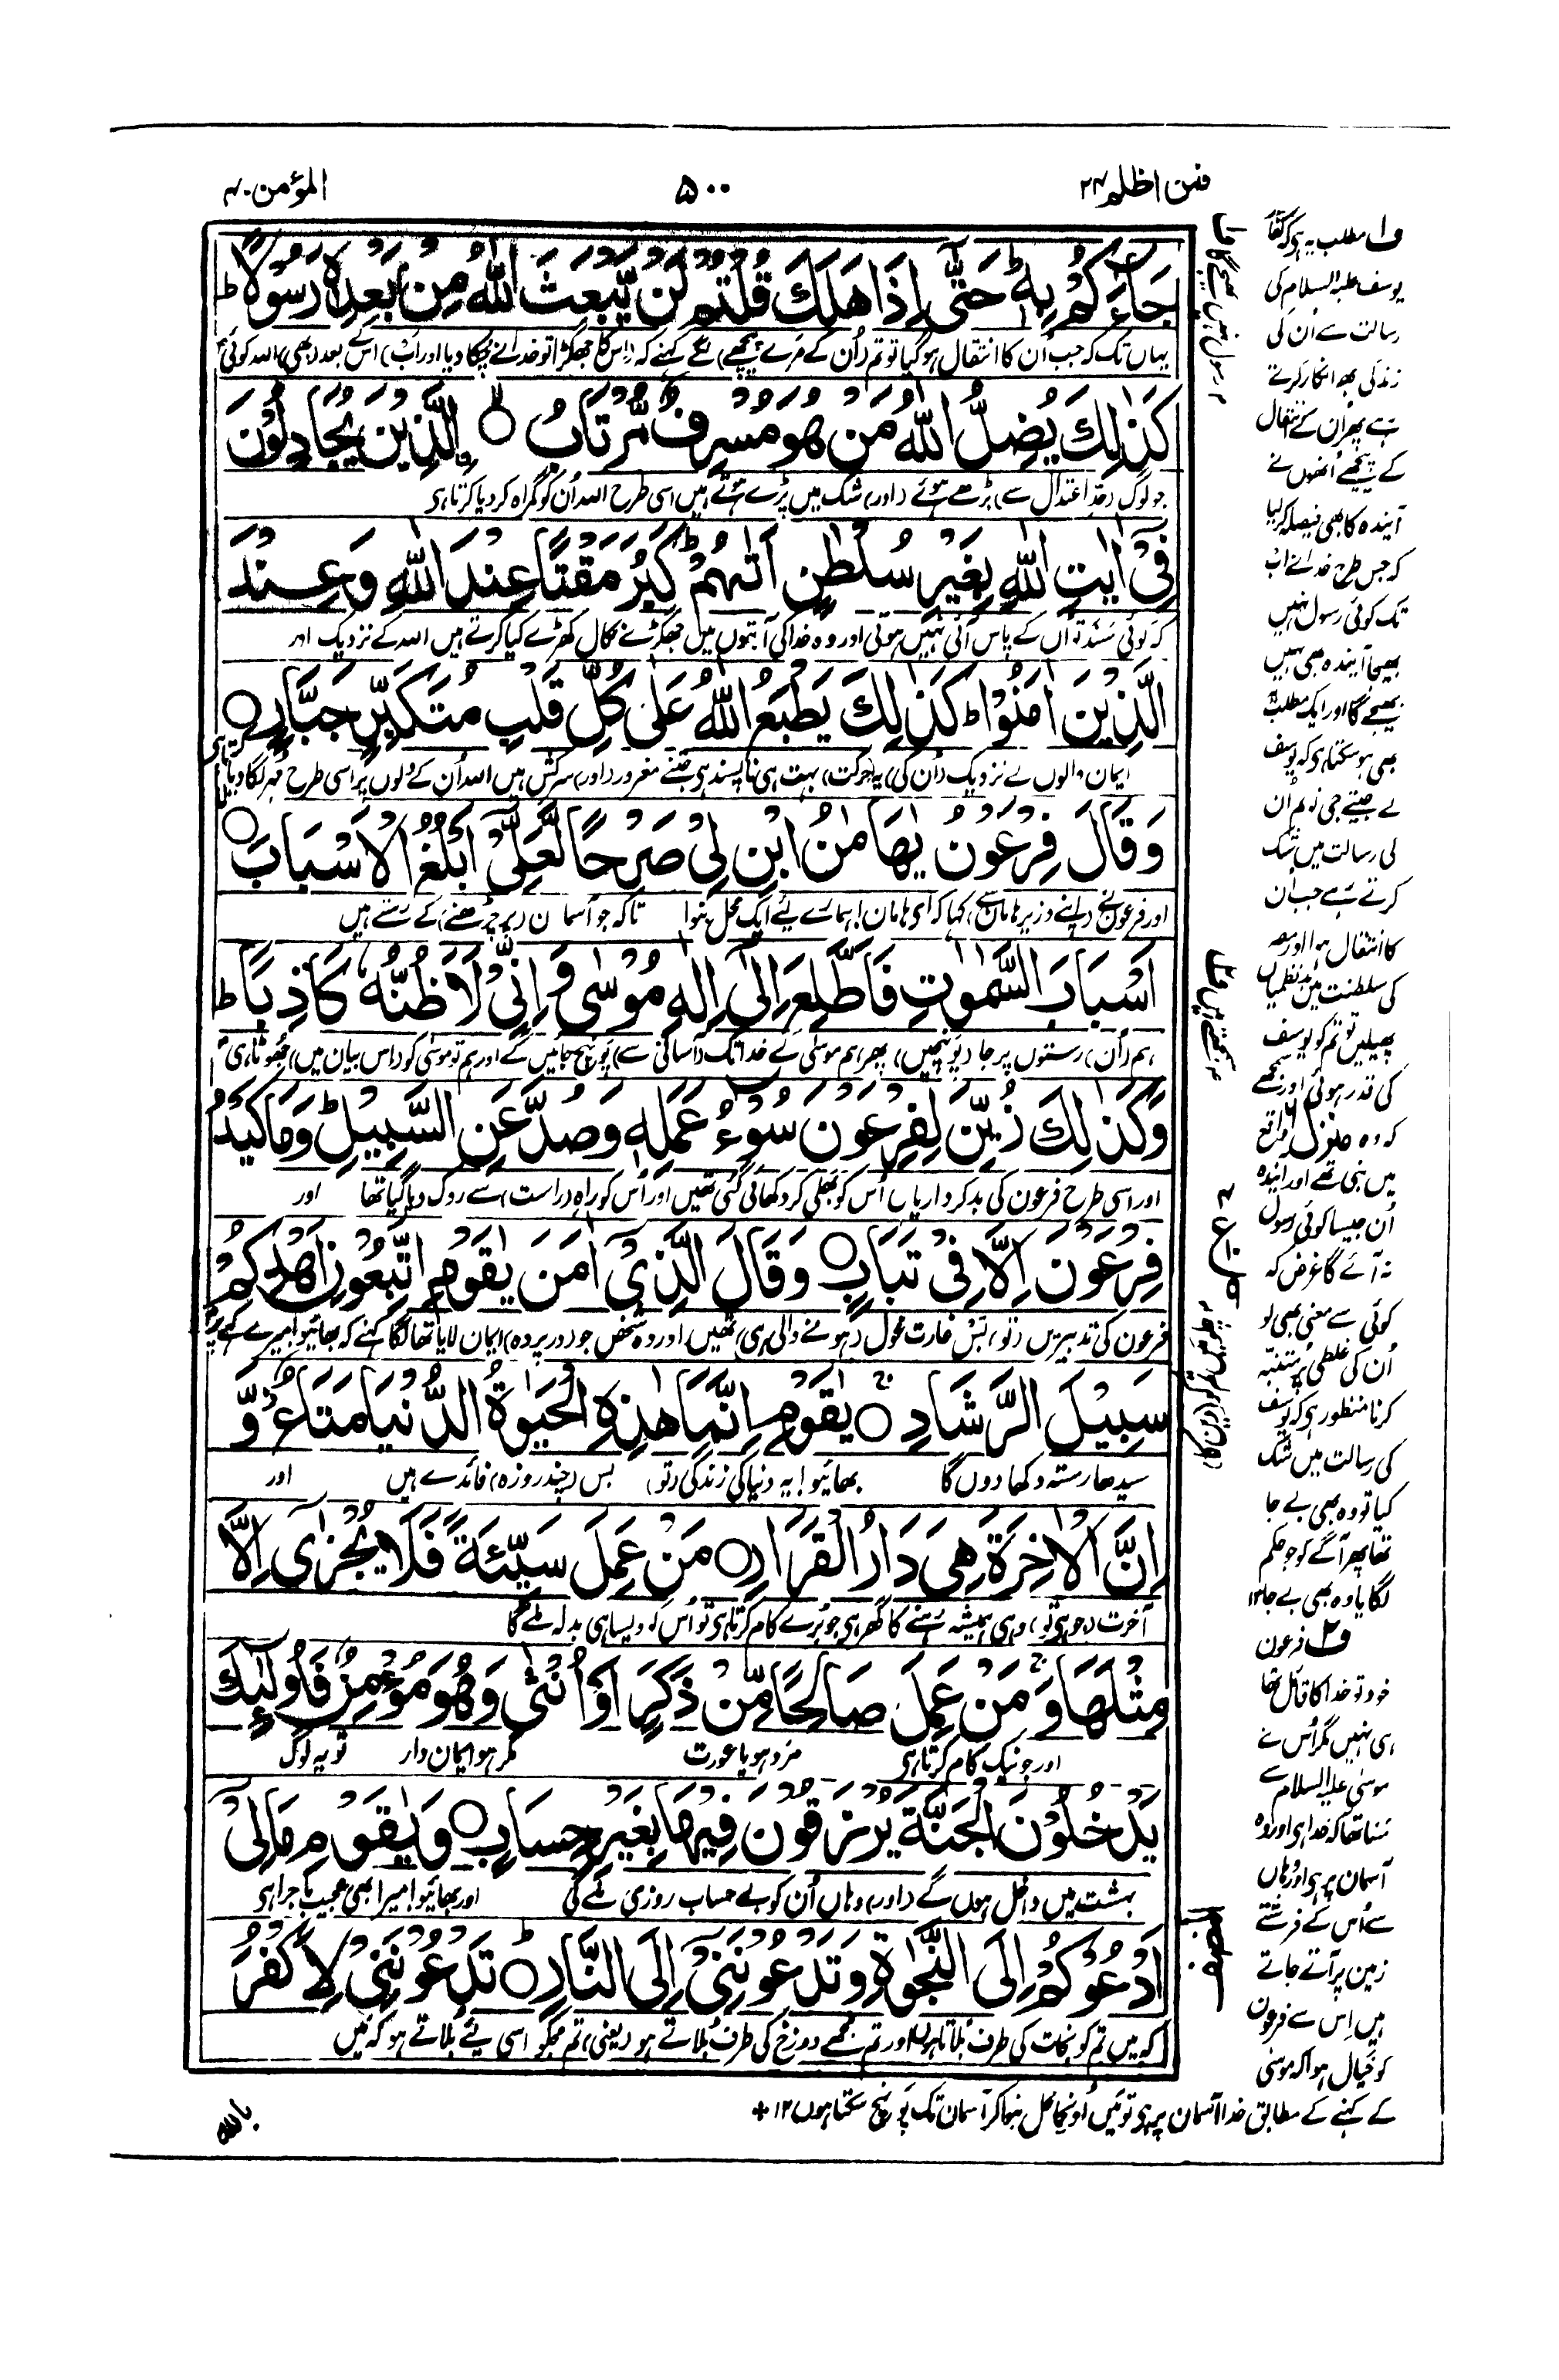 فمن اظلم ۲۴
۵۰۰
المؤمن ۴۰
جَآءَكُمْ بِهٖ ؕ حَتّٰۤى اِذَا هَلَكَ قُلْتُمْ لَنْ يَّبْعَثَ اللّٰهُ مِنْۢ بَعْدِهٖ رَسُوْلًا ؕ
یہاں تک کہ جب اُن کا انتقال ہو گیا تو تم (اُن کے مَرے پیچھے) لگے کہنے کہ (اِس کا جھگڑا تو خدا نے چکا دیا اور اب) اس کے بعد (بھی) اللہ کوئی
كَذٰلِكَ يُضِلُّ اللّٰهُ مَنْ هُوَ مُسْرِفٌ مُّرْتَابُ ۙ○ الَّذِيْنَ يُجَادِلُوْنَ
جو لوگ (حدِّ اعتدال سے) بڑھے ہوئے (اور) شک میں پڑے ہوتے ہیں اسی طرح اللہ اُن کو گمراہ کر دیا کرتا ہی
فِيْۤ اٰيٰتِ اللّٰهِ بِغَيْرِ سُلْطٰنٍ اَتٰىهُمْ ؕ كَبُرَ مَقْتًا عِنْدَ اللّٰهِ وَ عِنْدَ
کہ کوئی سند تو اُن کے پاس آئی نہیں ہوتی اور وہ خدا کی آیتوں میں جھگڑے نکال کھڑے کیا کرتے ہیں اللہ کے نزدیک اور
الَّذِيْنَ اٰمَنُوْا ؕ كَذٰلِكَ يَطْبَعُ اللّٰهُ عَلٰى كُلِّ قَلْبِ مُتَكَبِّرٍ جَبَّارٍ ○
ایمان والوں کے نزدیک (اُن کی) یہ (حرکت) بہت ہی ناپسند ہی جتنے مغرور (اور) سرکش ہیں اللہ اُن کے دلوں پر اسی طرح مُہر لگا دیا کرتا ہی
وَ قَالَ فِرْعَوْنُ يٰهَامٰنُ ابْنِ لِيْ صَرْحًا لَّعَلِّيْۤ اَبْلُغُ الْاَسْبَابَ ○
اور فرعون نے (اپنے وزیر ہامان سے) کہا کہ ای ہامان! ہمارے لیے ایک محل بنوا تاکہ جو آسمان (پر چڑھنے) کے رستے ہیں
اَسْبَابَ السَّمٰوٰتِ فَاَطَّلِعَ اِلٰۤى اِلٰهِ مُوْسٰى وَ اِنِّيْ لَاَظُنُّهٗ كَاذِبًا ؕ
ہم (اُن) رستوں پر جا (پہنچیں) پھر ہم موسٰی کے خدا تک (آسانی سے) پہنچ جائیں گے اور ہم تو موسٰی کو (اس بیان میں) جھوٹا ہی
وَ كَذٰلِكَ زُيِّنَ لِفِرْعَوْنَ سُوْٓءُ عَمَلِهٖ وَ صُدَّ عَنِ السَّبِيْلِ ؕ وَ مَا كَيْدُ
اور اسی طرح فرعون کی بدکرداریاں اُس کو بھلی کر دکھائی گئی تھیں اور اُس کو راہِ (راست) سے روک دیا گیا تھا اور
فِرْعَوْنَ اِلَّا فِيْ تَبَابٍ ○ وَ قَالَ الَّذِيْۤ اٰمَنَ يٰقَوْمِ اتَّبِعُوْنِ اَهْدِكُمْ
فرعون کی تدبیریں (تو) بس غارت غول (ہونے والی ہی) تھیں اور وہ شخص جو (در پردہ) ایمان لایا تھا لگا کہنے کہ بھائیو! میرے کہے پر
سَبِيْلَ الرَّشَادِ ○ يٰقَوْمِ اِنَّمَا هٰذِهِ الْحَيٰوةُ الدُّنْيَا مَتَاعٌ وَّ
سیدھا رستہ دکھا دوں گا بھائیو! یہ دنیا کی زندگی (تو) بس (چند روزہ) فائدے ہیں اور
اِنَّ الْاٰخِرَةَ هِيَ دَارُ الْقَرَارِ ○ مَنْ عَمِلَ سَيِّئَةً فَلَا يُجْزٰۤى اِلَّا
آخرت (جو ہی تو) وہی ہمیشہ رہنے کا گھر ہی جو بُرے کام کرتا ہی تو اُس کو ویسا ہی بدلہ ملے گا
مِثْلَهَا وَ مَنْ عَمِلَ صَالِحًا مِّنْ ذَكَرٍ اَوْ اُنْثٰى وَ هُوَ مُؤْمِنٌ فَاُولٰٓئِكَ
اور جو نیک کام کرتا ہی مرد ہو یا عورت مگر ہو ایمان دار تو یہ لوگ
يَدْخُلُوْنَ الْجَنَّةَ يُرْزَقُوْنَ فِيْهَا بِغَيْرِ حِسَابٍ ○ وَ يٰقَوْمِ مَا لِيْۤ
بہشت میں داخل ہوں گے (اور) وہاں اُن کو بے حساب روزی ملے گی اور بھائیو! میرا بھی عجیب ماجرا ہی
اَدْعُوْكُمْ اِلَى النَّجٰوةِ وَ تَدْعُوْنَنِيْۤ اِلَى النَّارِ ○ تَدْعُوْنَنِيْ لِاَكْفُرَ
کہ میں تم کو نجات کی طرف بُلاتا ہوں اور تم مجھے دوزخ کی طرف بُلاتے ہو (یعنی) تم مجھکو اسی لیے بُلاتے ہو کہ میں
رسول نہیں بھیجے گا ف۱
سمجھتے ہیں ف۲
ف۱ مطلب یہ ہی کہ کفار
یوسف علیہ السلام کی
رسالت سے اُن کی
زندگی بھر انکار کرتے
رہے پھر اُن کے انتقال
کے پیچھے اُنھوں نے
آیندہ کا بھی فیصلہ کر لیا
کہ جس طرح خدا نے اب
تک کوئی رسول نہیں
بھیجا آیندہ بھی نہیں
بھیجے گا اور ایک مطلب
بھی ہو سکتا ہی کہ یوسف
کے جیتے جی تو تم اُن
کی رسالت میں شک
کرتے رہے جب اُن
کا انتقال ہوا اور مصر
کی سلطنت میں بدنظمیاں
پھیلیں تو تم کو یوسف
کی قدر ہوئی اور سمجھے
کہ وہ
میں نبی تھے اور آیندہ
اُن جیسا کوئی رسول
نہ آئے گا غرض کہ
کوئی سے معنی بھی لو
اُن کی غلطی پر متنبہ
کرنا منظور ہی کہ یوسف
کی رسالت میں شک
کیا تو وہ بھی بے جا
تھا پھر آگے کو جو حکم
لگایا وہ بھی بے جا ۱۲
ف۲ فرعون
خود تو خدا کا قائل تھا
ہی نہیں مگر اُس نے
موسٰی علیہ السلام سے
سُنا تھا کہ خدا ہی اور وہ
آسمان پر ہی اور وہاں
سے اُس کے فرشتے
زمین پر آتے جاتے
ہیں اِس سے فرعون
کو خیال ہوا کہ موسٰی
کے کہنے کے مطابق خدا آسمان پر ہی تو میں اُونچا محل بنوا کر آسمان تک پہنچ سکتا ہوں ۱۲ +
باللہ